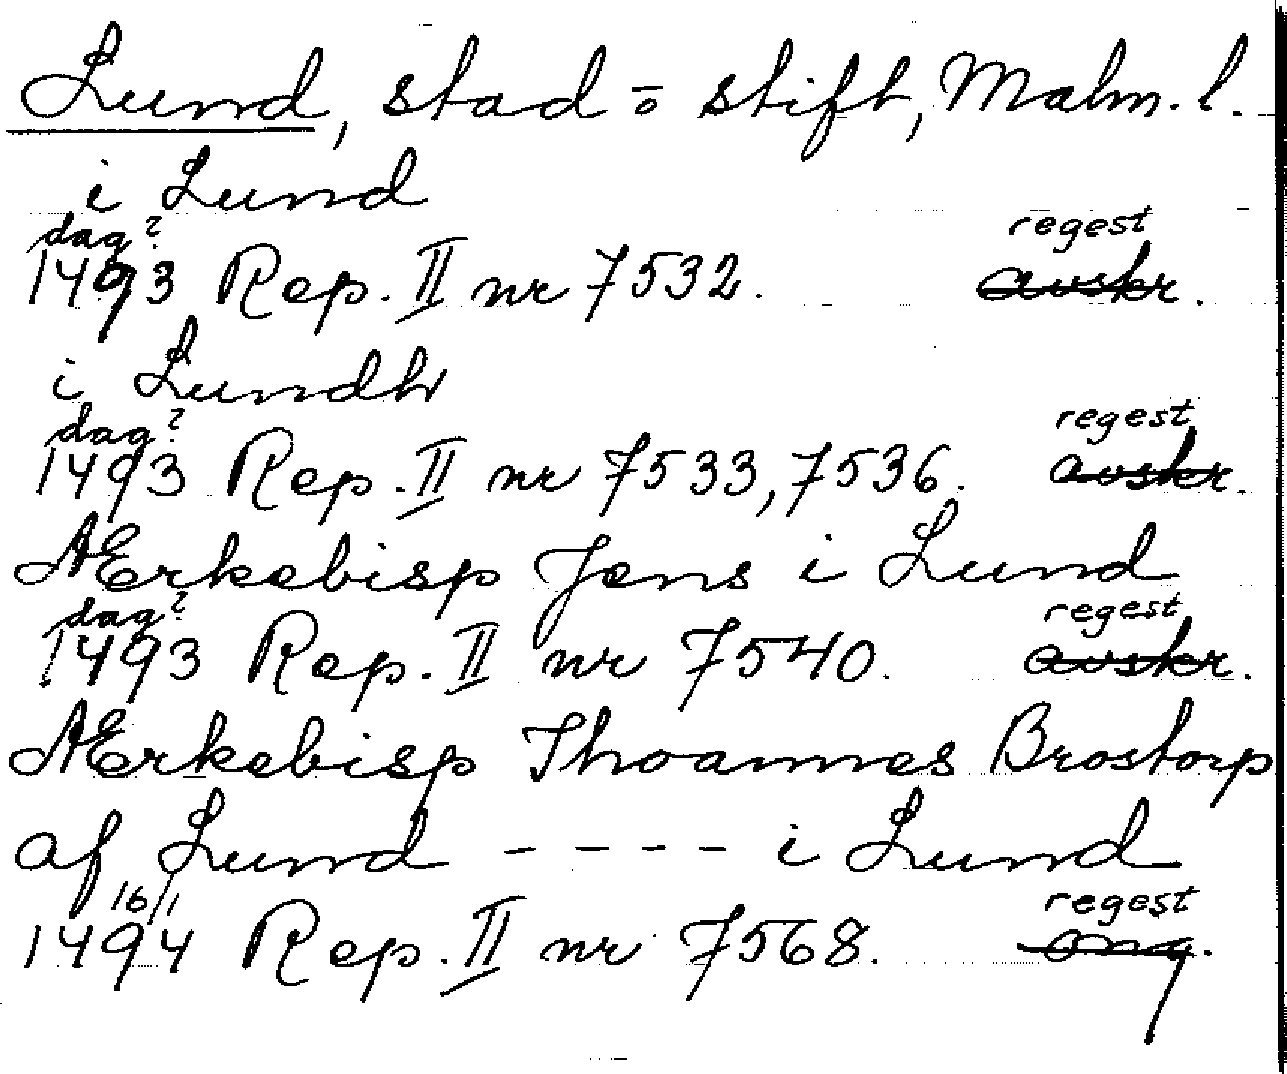 Lund, stad o stift, Malm. l.
i Lund
dag? regest
1493 Rep. II nr 7532. avskr.
i Lundh
dag? regest
1493 Rep. II nr 7533, 7536. avskr.
Ærkebisp Jens i Lund
dag? regest
1493 Rep. II nr 7540. avskr.
Ærkebisp Jhoannes Brostorp
af Lund - - - - i Lund
16/1 regest
1494 Rep. II nr 7568. orig.